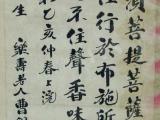 須菩提菩薩
住行於布施所
不住聲香味
乙亥仲春上浣
樂壽老人曹